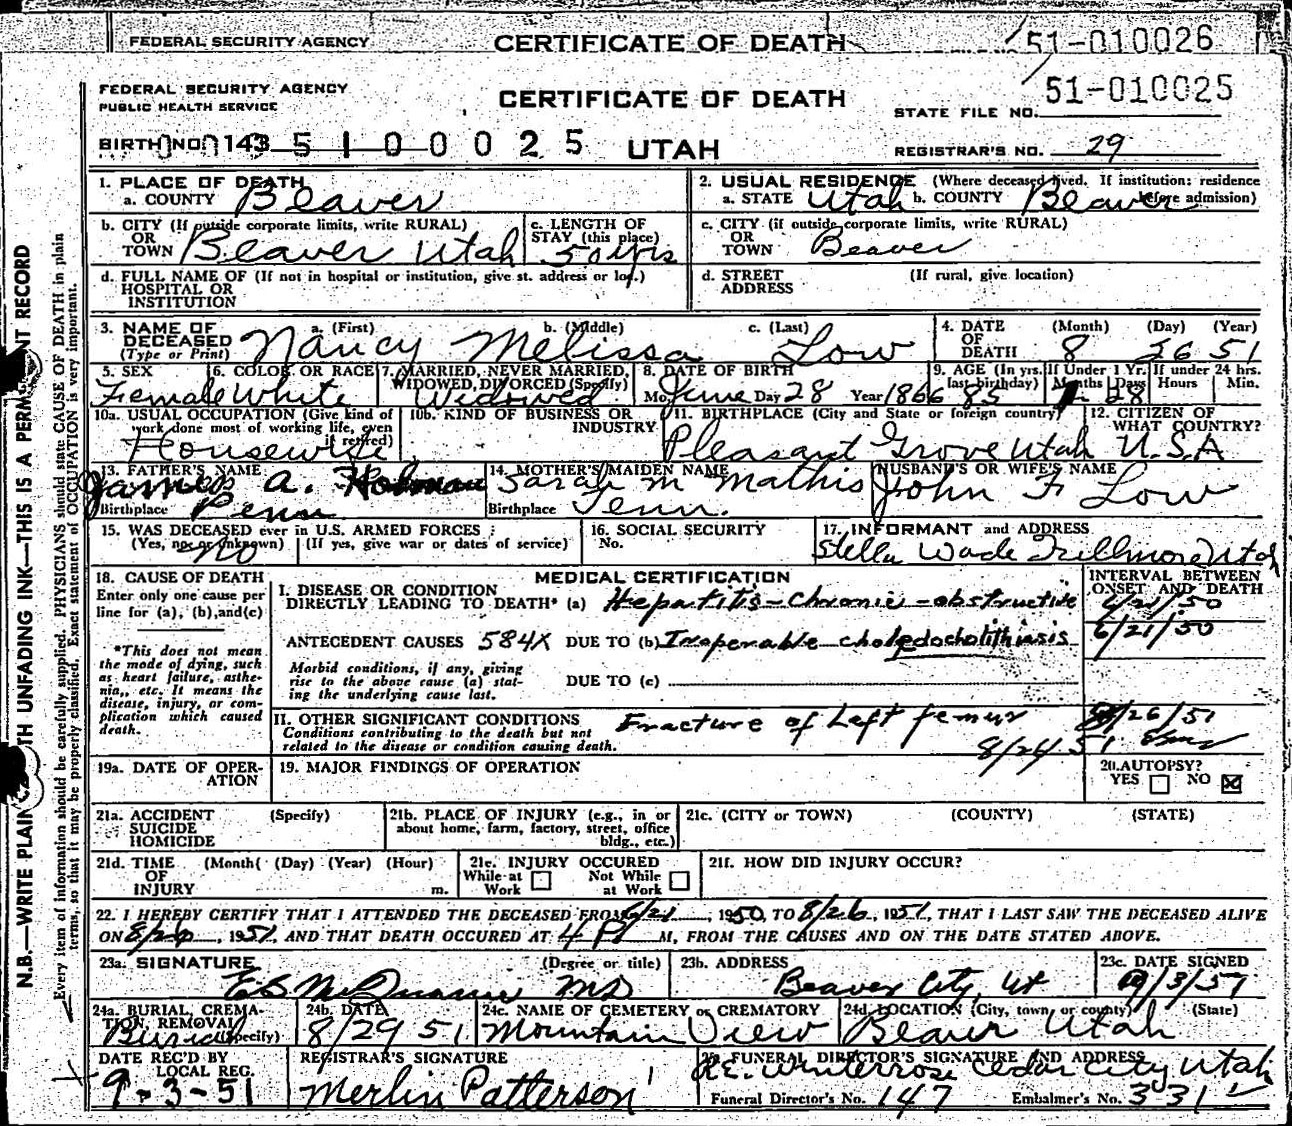 FEDERAL SECURITY AGENCY CERTIFICATE OF DEATH 51-010026
FEDERAL SECURITY AGENCY
PUBLIC HEALTH SERVICE
CERTIFICATE OF DEATH
STATE FILE NO. 51-010025
BIRTH NO. 143 5100025 UTAH
REGISTRAR'S NO. 29
1. PLACE OF DEATH
a. COUNTY Beaver
2. USUAL RESIDENCE (Where deceased lived. If institution: residence before admission)
a. STATE Utah b. COUNTY Beaver
b. CITY (If outside corporate limits, write RURAL)
OR
TOWN Beaver Utah
c. LENGTH OF
STAY (this place)
50 yrs
c. CITY (if outside corporate limits, write RURAL)
OR
TOWN Beaver
d. FULL NAME OF (If not in hospital or institution, give st. address or loc.)
HOSPITAL OR
INSTITUTION
d. STREET (If rural, give location)
ADDRESS
3. NAME OF
DECEASED
(Type or Print)
a. (First) b. (Middle) c. (Last)
Nancy Melissa Low
4. DATE (Month) (Day) (Year)
OF
DEATH 8 26 51
5. SEX
Female
6. COLOR OR RACE
White
7. MARRIED, NEVER MARRIED,
WIDOWED, DIVORCED (Specify)
Widowed
8. DATE OF BIRTH
Mo. June Day 28 Year 1866
9. AGE (In yrs. last birthday) 85
If Under 1 Yr. Months Days 28
If under 24 hrs. Hours Min.
10a. USUAL OCCUPATION (Give kind of
work done most of working life, even
if retired)
Housewife
10b. KIND OF BUSINESS OR
INDUSTRY
11. BIRTHPLACE (City and State or foreign country)
Pleasant Grove Utah
12. CITIZEN OF
WHAT COUNTRY?
U.S.A
13. FATHER'S NAME
James A. Holman
Birthplace Penn
14. MOTHER'S MAIDEN NAME
Sarah M Mathis
Birthplace Tenn.
HUSBAND'S OR WIFE'S NAME
John F Low
15. WAS DECEASED ever in U.S. ARMED FORCES
(Yes, no or unknown) (If yes, give war or dates of service)
No
16. SOCIAL SECURITY
No.
17. INFORMANT and ADDRESS
Stella Wade Fillmore Utah
18. CAUSE OF DEATH
Enter only one cause per
line for (a), (b), and (c)
*This does not mean
the mode of dying, such
as heart failure, asthe-
nia, etc. It means the
disease, injury, or com-
plication which caused
death.
MEDICAL CERTIFICATION
I. DISEASE OR CONDITION
DIRECTLY LEADING TO DEATH* (a) Hepatitis - chronic - obstructive
ANTECEDENT CAUSES 584X DUE TO (b) Inoperable choledocholithiasis
Morbid conditions, if any, giving
rise to the above cause (a) stat-
ing the underlying cause last.
DUE TO (c)
INTERVAL BETWEEN
ONSET AND DEATH
6/21/50
6/21/50
II. OTHER SIGNIFICANT CONDITIONS
Conditions contributing to the death but not
related to the disease or condition causing death.
Fracture of Left femur
8/24/51
8/26/51
19a. DATE OF OPER-
ATION
19. MAJOR FINDINGS OF OPERATION
20. AUTOPSY?
YES NO
21a. ACCIDENT (Specify)
SUICIDE
HOMICIDE
21b. PLACE OF INJURY (e.g., in or
about home, farm, factory, street, office
bldg., etc.)
21c. (CITY or TOWN) (COUNTY) (STATE)
21d. TIME (Month) (Day) (Year) (Hour)
OF
INJURY m.
21e. INJURY OCCURED
While at Work Not While at Work
21f. HOW DID INJURY OCCUR?
22. I HEREBY CERTIFY THAT I ATTENDED THE DECEASED FROM 6/21, 1950, TO 8/26, 1951, THAT I LAST SAW THE DECEASED ALIVE
ON 8/26, 1951, AND THAT DEATH OCCURED AT 4 P M, FROM THE CAUSES AND ON THE DATE STATED ABOVE.
23a. SIGNATURE (Degree or title)
MD
23b. ADDRESS
Beaver City, Ut
23c. DATE SIGNED
9/3/51
24a. BURIAL, CREMA-
TION, REMOVAL
(Specify)
Burial
24b. DATE
8/29 51
24c. NAME OF CEMETERY or CREMATORY
Mountain View
24d. LOCATION (City, town, or county) (State)
Beaver Utah
DATE REC'D BY
LOCAL REG.
9-3-51
REGISTRAR'S SIGNATURE
Merlin Patterson
25. FUNERAL DIRECTOR'S SIGNATURE AND ADDRESS
R.E. Winterrose Cedar City Utah
Funeral Director's No. 147 Embalmer's No. 331
N.B.—WRITE PLAINLY WITH UNFADING INK—THIS IS A PERMANENT RECORD
Every item of information should be carefully supplied. PHYSICIANS should state CAUSE OF DEATH in plain
terms, so that it may be properly classified. Exact statement of OCCUPATION is very important.